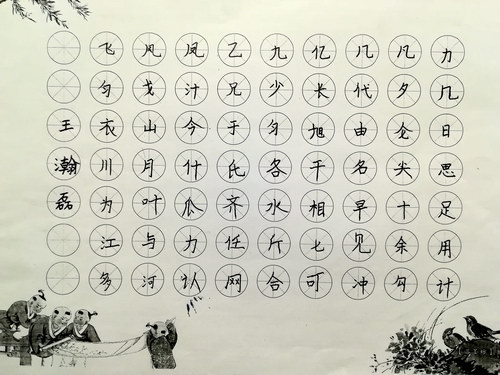 力几日思足用计
凡夕仑尖十余勾
几代由名早见冲
亿长旭干相七可
九少匀各水斤合
乙兄于氏齐任网
凤汁今什瓜力认
风戈山月叶与河
飞匀衣川为江多
王瀚磊